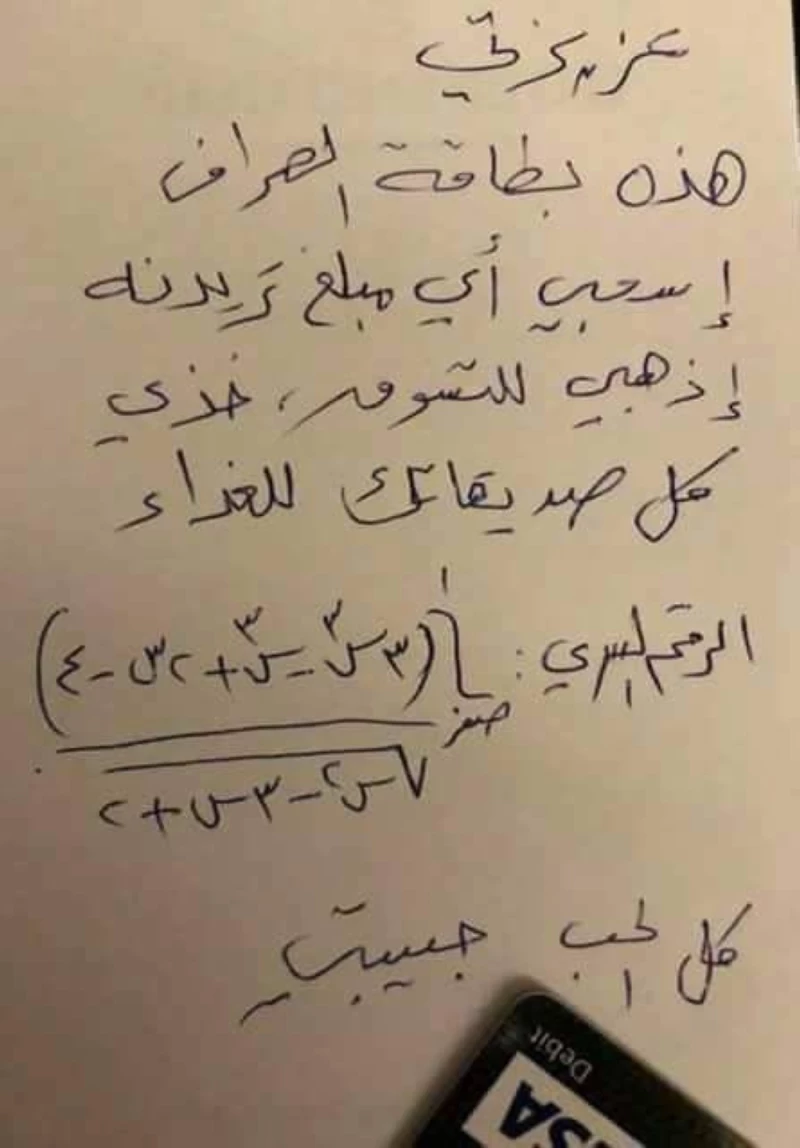 عزيزتي
هذه بطاقة الصراف
إسحبي أي مبلغ تريدنه
إذهبي للتسوق، خذي
كل صديقاتك للغداء
الرقم السري: ∫ صفر ١ (٣س٣ - س٣ + ٢س - ٤)
√س٢ - ٣س + ٢
كل الحب حبيبتي
Debit
VISA